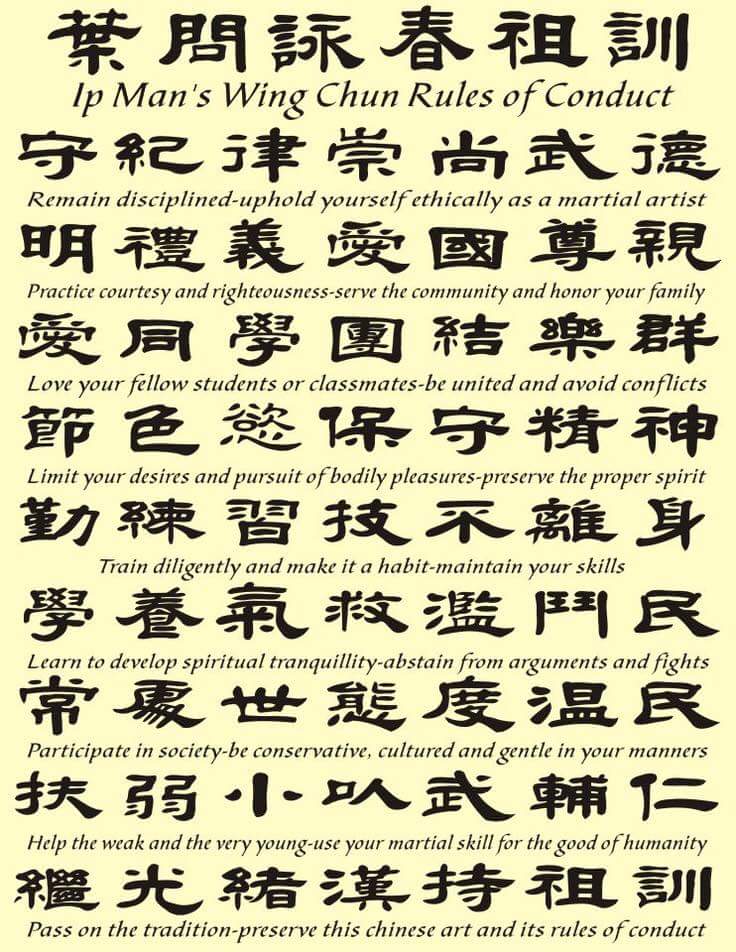 葉問詠春祖訓
Ip Man's Wing Chun Rules of Conduct
守紀律崇尚武德
Remain disciplined-uphold yourself ethically as a martial artist
明禮義愛國尊親
Practice courtesy and righteousness-serve the community and honor your family
愛同學團結樂群
Love your fellow students or classmates-be united and avoid conflicts
節色慾保守精神
Limit your desires and pursuit of bodily pleasures-preserve the proper spirit
勤練習技不離身
Train diligently and make it a habit-maintain your skills
學養氣救濫鬥民
Learn to develop spiritual tranquillity-abstain from arguments and fights
常處世態度温民
Participate in society-be conservative, cultured and gentle in your manners
扶弱小以武輔仁
Help the weak and the very young-use your martial skill for the good of humanity
繼光緒漢持祖訓
Pass on the tradition-preserve this chinese art and its rules of conduct